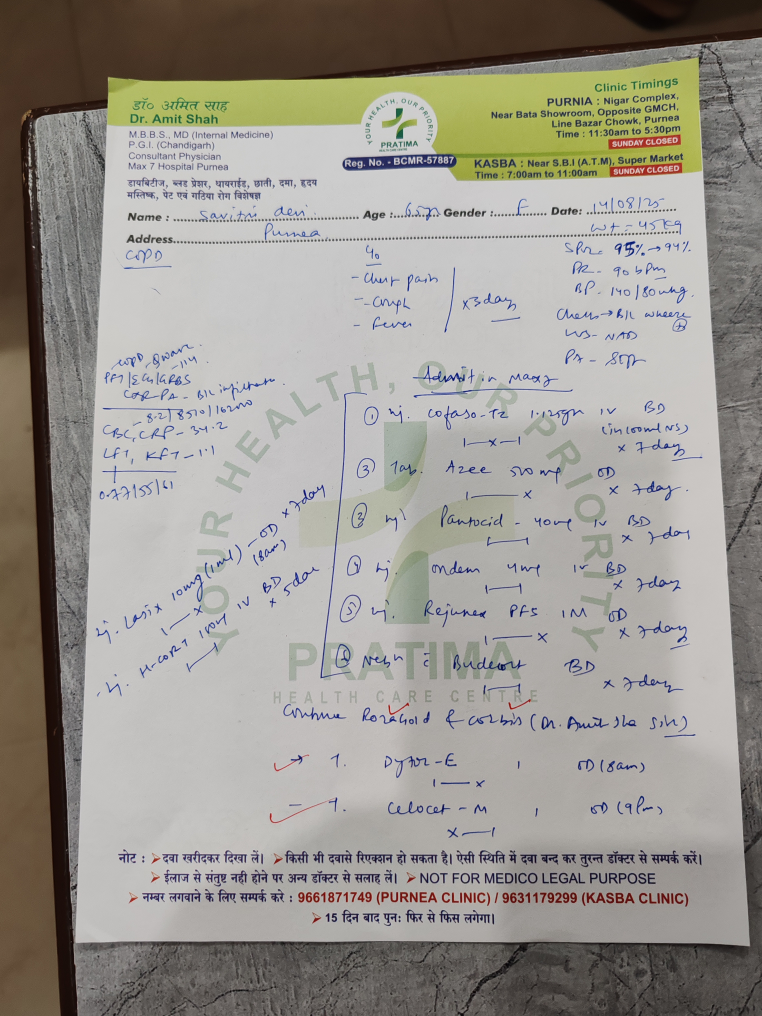 डॉ० अमित साह
Dr. Amit Shah
M.B.B.S., MD (Internal Medicine)
P.G.I. (Chandigarh)
Consultant Physician
Max 7 Hospital Purnea
डायबिटीज, ब्लड प्रेशर, थायराईड, छाती, दमा, हृदय
मस्तिष्क, पेट एवं गठिया रोग विशेषज्ञ
YOUR HEALTH, OUR PRIORITY
PRATIMA
HEALTH CARE CENTRE
Reg. No. - BCMR-57887
Clinic Timings
PURNIA : Nigar Complex,
Near Bata Showroom, Opposite GMCH,
Line Bazar Chowk, Purnea
Time : 11:30am to 5:30pm
SUNDAY CLOSED
KASBA : Near S.B.I (A.T.M), Super Market
Time : 7:00am to 11:00am SUNDAY CLOSED
Name : Savitri devi Age : 65yr Gender : F Date: 14/08/25
Address Purnea
Wt = 45kg
COPD
c/o
- Chest pain
- Cough
- Fever
x 3 day
SPO2 95% → 94%
PR - 90 bpm
BP - 140/80 mmhg
Chest → B/L wheeze +
NAD
PA - Soft
- 114
CXR-PA - B/L infiltrate
- 8.2/8510/
CBC, CRP - 34.2
LFT, KFT - 1.1
0.77/55/61
Admit in Max 7
① inj. Cofaso-TZ 1.125gm IV BD
1—x—1 (in 100ml NS) x 7 day
③ Tab. Azee 500mg OD
1——x x 7 day
③ inj Pantocid - 40mg IV BD
1—1 x 7 day
④ inj. Ondem 4mg IV BD
1—1 x 7 day
⑤ inj. Rejunex PFS IM OD
1——x x 7 day
Budecort BD
1—1 x 7 day
inj. Lasix 10mg (1ml) - OD x 7 day
1—x (8am)
- inj. H-CORT 100mg IV BD
1—1 x 5 day
Continue Rozagold & Corbis (Dr. Amit Sir)
→ T. Dytor-E , OD (8am)
1—x
- T. Celocet-M , OD (9pm)
x—1
YOUR HEALTH, OUR PRIORITY
PRATIMA
HEALTH CARE CENTRE
नोट : ➤ दवा खरीदकर दिखा लें। ➤ किसी भी दवासे रिएक्शन हो सकता है। ऐसी स्थिति में दवा बन्द कर तुरन्त डॉक्टर से सम्पर्क करें।
➤ ईलाज से संतुष्ट नही होने पर अन्य डॉक्टर से सलाह लें। ➤ NOT FOR MEDICO LEGAL PURPOSE
➤ नम्बर लगवाने के लिए सम्पर्क करे : 9661871749 (PURNEA CLINIC) / 9631179299 (KASBA CLINIC)
➤ 15 दिन बाद पुनः फिर से फिस लगेगा।